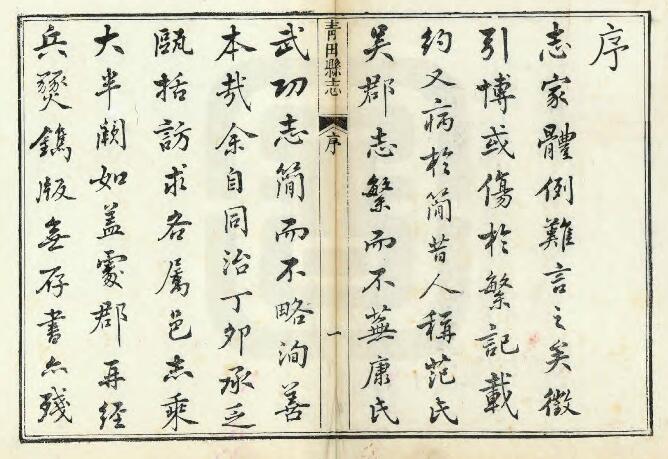 序
志家體例難言之矣徵
引博或傷於繁記載
約又病於簡昔人稱范氏
吴郡志繁而不蕪康氏
青田縣志
序
一
武功志簡而不略洵善
本哉余自同治丁卯承乏
甌括訪求各屬邑志乘
大半闕如盖處郡再經
兵燹鐫版無存書亦殘